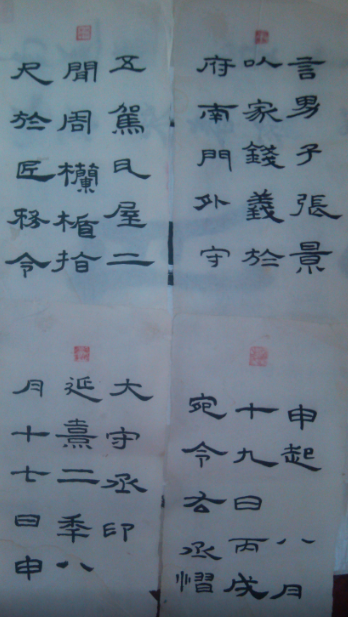 言男子張景
以家錢義於
府南門外守
五駕瓦屋二
聞周欄楯拾
尺於匠務令
申起八月
十九日丙戌
宛令右丞慴
大守丞印
延熹二年八
月十七日申